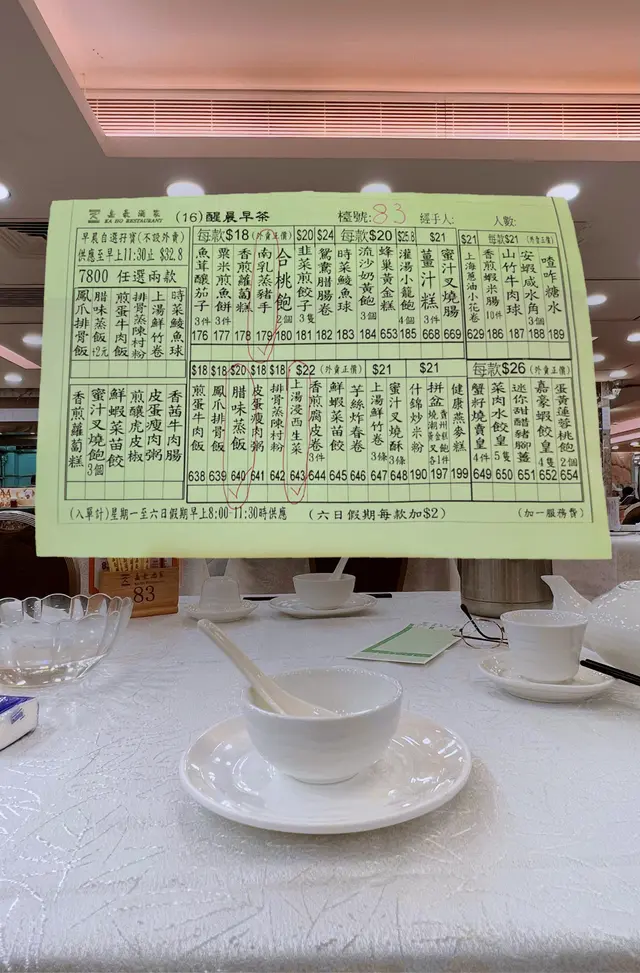 嘉豪酒家
KA HO RESTAURANT
(16)醒晨早茶
檯號:83
經手人:
人數:
早晨自選孖寶(不設外賣)
供應至早上11:30止 $32.8
7800 任選兩款
鳳爪排骨飯
腊味蒸飯+2元
煎蛋牛肉飯
排骨蒸陳村粉
上湯鮮竹卷
時菜鯪魚球
香煎蘿蔔糕
蜜汁叉燒飽3個
鮮蝦菜苗餃
煎釀虎皮椒
皮蛋瘦肉粥
香茜牛肉腸
每款$18(外賣正價)
魚茸釀茄子3件 176
粟米煎魚餅3件 177
香煎蘿蔔糕 178
南乳蒸豬手 179
合桃飽2個 180
$20
韭菜煎餃子3隻 181
$24
鴛鴦腊腸卷 182
每款$20
時菜鯪魚球 183
流沙奶黃飽3個 184
蜂巢黃金糕 653
$25.8
灌湯小籠飽4個 185
$21
薑汁糕3件 668
蜜汁叉燒腸 669
$21
上海蔥油小花卷 629
每款$21(外賣正價)
香煎蝦米腸10件 186
山竹牛肉球 187
安蝦咸水角3個 188
喳咋糖水 189
$18
煎蛋牛飯 638
$18
鳳爪排骨飯 639
$20
腊味蒸飯 640
$18
皮蛋瘦肉粥 641
$18
排骨蒸陳村粉 642
$22(外賣正價)
上湯浸西生菜 643
香煎腐皮卷3件 644
鮮蝦菜苗餃 645
芋絲炸春卷 646
$21
上湯鮮竹卷3條 647
蜜汁叉燒酥3條 648
什錦炒米粉 190
$21
拼盆 197
健康燕麥糕 199
每款$26(外賣正價)
蟹籽燒賣皇4件 649
菜肉水餃皇5隻 650
迷你甜醋豬腳薑 651
嘉豪蝦餃皇4隻 652
蛋黃蓮蓉桃飽2個 654
(入單計)星期一至六日假期早上8:00-11:30時供應
(六日假期每款加$2)
(加一服務費)
嘉豪酒家
83